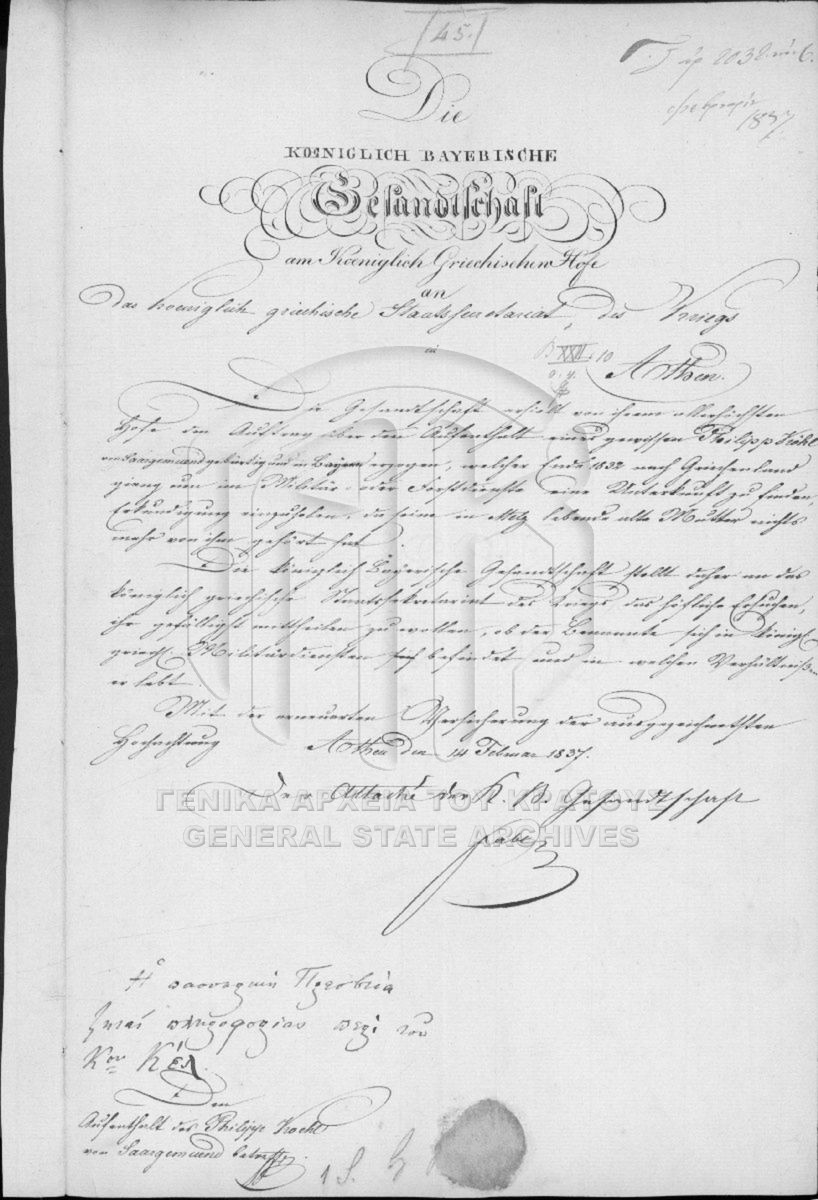 45.
1837
Die
KŒNIGLICH BAYERISCHE
Gesandtschaft
am Kœniglich Griechischen Hofe
an
das koeniglich griechische Staatssecretariat des Kriegs
in
B XXII. 10
Athen.
Die Gesandtschaft erhielt von ihrem allerhöchsten
Hofe den Auftrag über den Aufenthalt eines gewissen Philipp Köhl
von Saargemünd gebürtig und in Bayern erzogen, welcher Ende 1832 nach Griechenland
gieng um im Militär- oder Forstdienste eine Unterkunft zu finden,
Erkundigung einzuholen, da seine in Metz lebende alte Mutter nichts
mehr von ihm gehört hat.
Die königlich bayerische Gesandtschaft stellt daher an das
königlich griechische Staatssekretariat des Kriegs, das höfliche Ersuchen,
ihr gefälligst mittheilen zu wollen, ob der Benannte sich in königl.
griech. Militärdiensten befindet und in welchen Verhältnißen
er lebt.
Mit der erneuerten Versicherung der ausgezeichnetsten
Hochachtung Athen den 14 Februar 1837.
Der Attaché der K. B. Gesandtschaft
ΓΕΝΙΚΑ ΑΡΧΕΙΑ ΤΟΥ ΚΡΑΤΟΥΣ
GENERAL STATE ARCHIVES
Ἡ παυαρικὴ Πρεσβεία
ζητεῖ πληροφορίας περὶ τοῦ
Κου Κέλ.
Den
Aufenthalt des Philipp Koehl
von Saargemuend betreff.